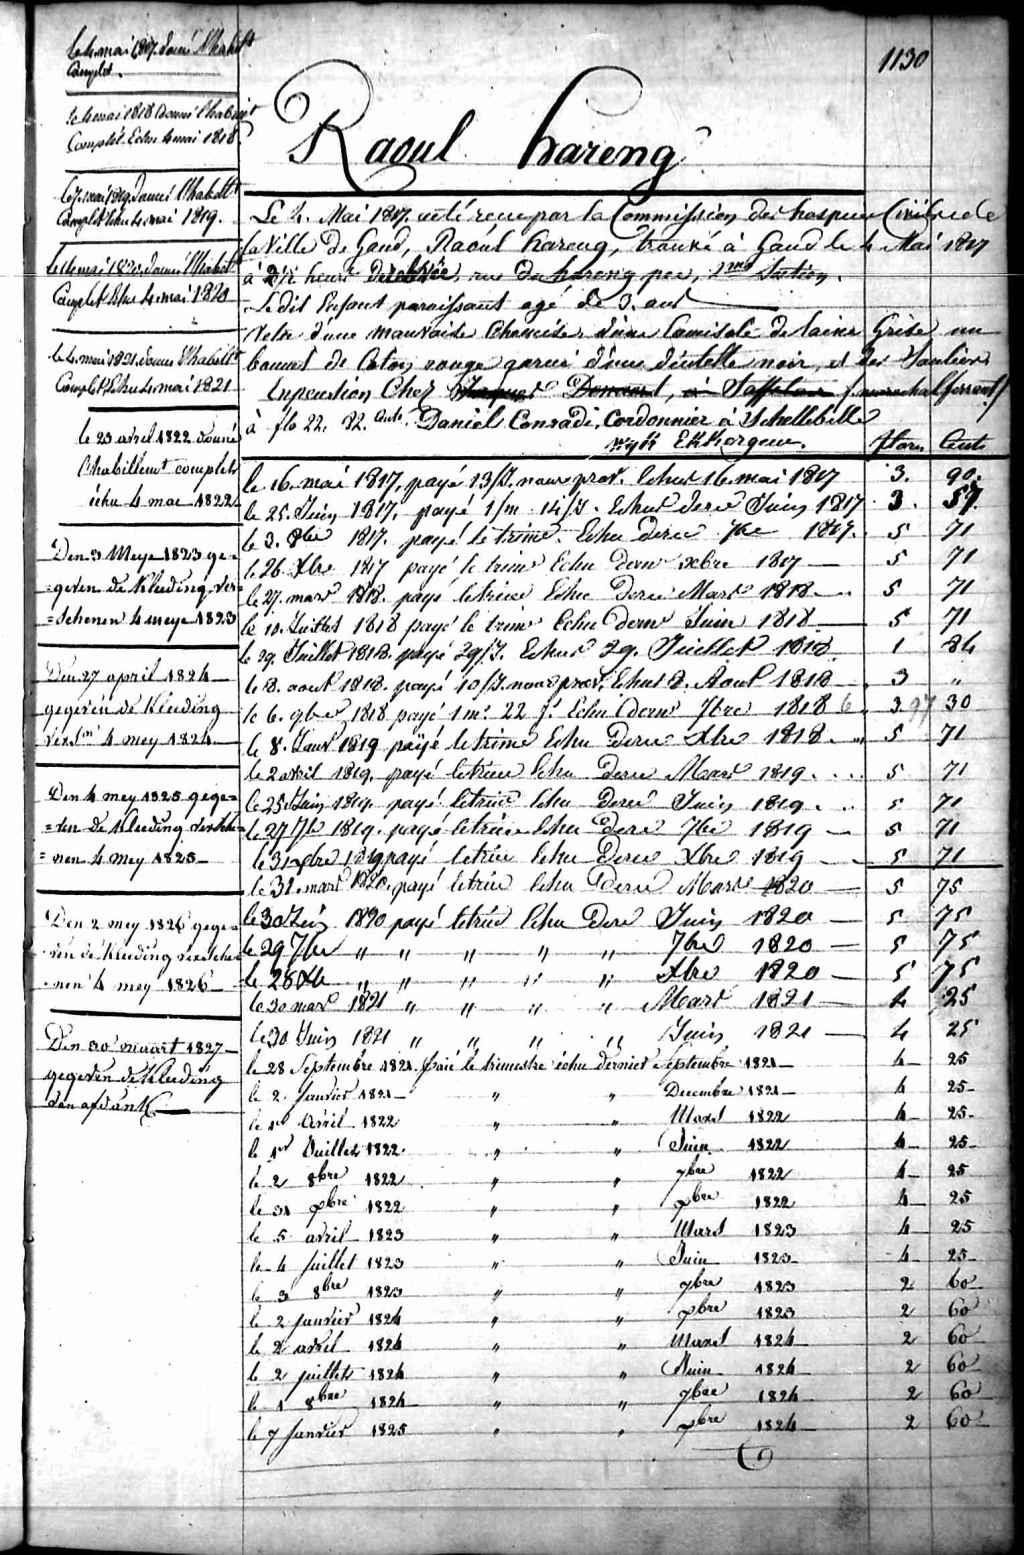 1130
Raoul hareng
le 4 mai 1817. donné l'habillt
Complet.
le 4 mai 1818 donné l'habillt
Complet Echu 4 mai 1818.
le 7. mai 1819. donné l'habillt
Complet Echu 4. mai 1819.
le 4 mai 1820, donné l'habillt
Complet Echu 4. mai 1820
le 4. mai 1821. donné l'habillt
Complet Echu 4 mai 1821
le 23 avril 1822 donné
l'habillemt complet
échu 4 mai 1822
Den 3 Meye 1823 ge-
geven de Kleeding ver-
=schenen 4 meye 1823
Den 27 april 1824
gegeven de Kleeding
4 mey 1824
Den 4 mey 1825 gege-
=ven de Kleeding verschee
=nen 4 mey 1825
Den 2 mey 1826 gege-
ven de Kleeding versche
nen 4 mey 1826
Den 30 maart 1827
gegeven de Kleeding
Le 4. Mai 1817. a été recu par la Commission des hospices Civils de
la Ville de Gand, Raoul hareng, trouvé à Gand le 4 Mai 1817
à heure rue du hareng
Ledit Enfant paraissant agé de 3. ans
Vetu d'une mauvaise Chemise, d'une Camisole de laine Grise un
bonnet de Coton rouge garni d'une dentelle noir, et des Souliers
En pension Chez
à flo 22. 32. Cents. Daniel Conradi, Cordonnier à Schellebelle
flor. Cents
le 16. mai 1817, payé 13/J. nour prov. Echus 16. mai 1817 3. 90.
le 25. Juin 1817. payé 1/m 14/J. Echus dernr Juin 1817 3. 57.
le 3. 8bre 1817. payé le trime. Echu dernr 7bre 1817. 5 71
le 26. Xbre 1817 payé le trime Echu dernr Xbre 1817 5 71
le 27. mars 1818. payé le trime Echu Dernr Mars 1818. 5 71
le 10. Juillet 1818 payé le trime Echu dernr Juin 1818 5 71
le 29. Juillet 1818. payé 29/J. Echus 29. Juillet 1818 1 84
le 8. aout 1818. payé 10/J. nour prov. Echus 8. Aout 1818 3 "
le 6. 9bre 1818 payé 1 m. 22 j. Echu dernr 7bre 1818 3 30
le 8. Janv 1819 payé le trime Echu Dernr Xbre 1818. 5 71
le 2 avril 1819. payé le trime Echu Dernr Mars 1819. 5 71
le 25 Juin 1819. payé le trime Echu Dernr Juin 1819. 5 71
le 27 7b 1819. payé le trime Echu Dernr 7bre 1819 5 71
le 31 Xbre 1819 payé le trime Echu Dernr Xbre 1819 5 71
le 31. mars 1820. payé le trime Echu Dernr Mars 1820 5 75
le 30 Juin 1820 payé le trime Echu Dernr Juin 1820 5 75
le 29 7bre " " " " " 7bre 1820 5 75
le 28 Xb " " " " " Xbre 1820 5 75
le 30 mars 1821 " " " " Mars 1821 4 25
le 30 Juin 1821 " " " " Juin 1821 4 25
le 28 Septembre 1821. Paié le trimestre échu dernier Septembre 1821 4 25
le 2 Janvier 1821 " " Decembre 1821 4 25
le 1r Avril 1822 " " Mars 1822 4 25
le 1er Juillet 1822 " " Juin 1822 4 25
le 2 8bre 1822 " " 7bre 1822 4 25
le 31 Xbre 1822 " " Xbre 1822 4 25
le 5 avril 1823 " " Mars 1823 4 25
le 4 Juillet 1823 " " Juin 1823 4 25
le 3 8bre 1823 " " 7bre 1823 2 60
le 2 Janvier 1824 " " Xbre 1823 2 60
le 2 avril 1824 " " Mars 1824 2 60
le 2 juillet 1824 " " Juin 1824 2 60
le 1 8bre 1824 " " 7bre 1824 2 60
le 7 Janvier 1825 " " Xbre 1824 2 60